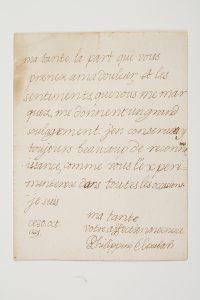 ma tante la part que vous
prenez a ma douleur, et les
sentiments, que vous me mar
quez, me donnent un grand
soulagement j'en conserveray
toujours beaucoup de recon
noissance, comme vous l'experi
menterez dans toutes les occasions
je suis
ma tante
ce 30 oct
votre affectionnee niece
Philippine